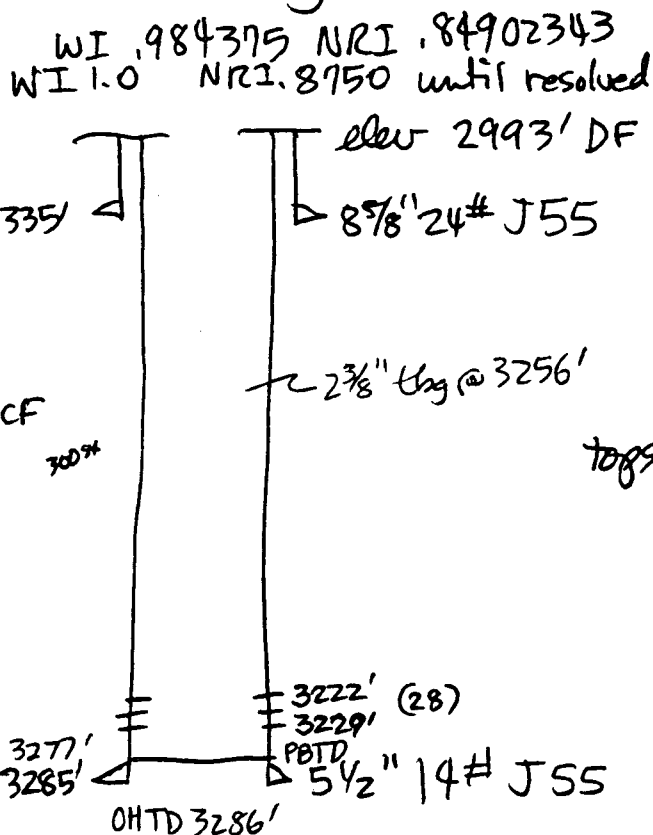 WI .984375 NRI .84902343
WI 1.0 NRI .8750 until resolved
elev 2993' DF
335' 8 5/8" 24# J55
2 3/8" tbg @ 3256'
CF
300 sx
tops
3222' (28)
3229'
3277' PBTD
3285' 5 1/2" 14# J55
OHTD 3286'